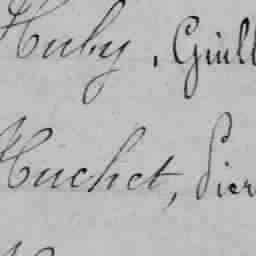 Huby, Guill
Huchet, Pier